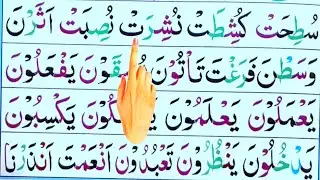 سُطِحَتْ كُشِطَتْ نُشِرَتْ نُصِبَتْ اَثَرْنَ
وَسَطْنَ فَرَغْتَ تَاْتُوْنَ يُسْقَوْنَ يَفْعَلُوْنَ
يَعْمَلُوْنَ يَعْلَمُوْنَ يَضْحَكُوْنَ يَكْسِبُوْنَ
يَدْخُلُوْنَ يَنْظُرُوْنَ تَعْبُدُوْنَ اَنْعَمْتَ اَنْذَرْنَا